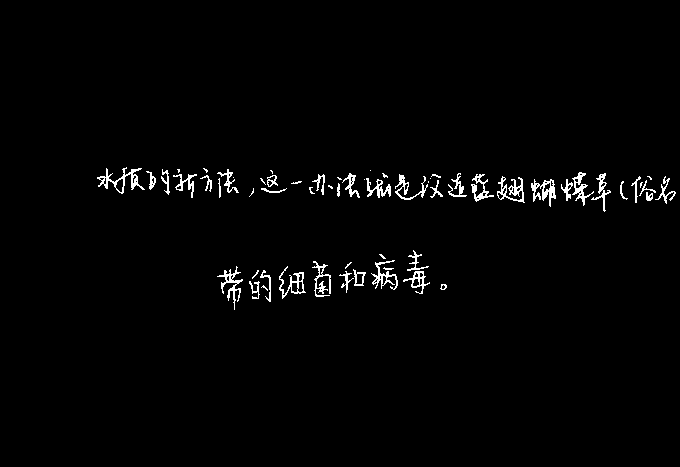 水质的新方法,这一办法就是改造蓝翅蝴蝶草(俗名
带的细菌和病毒。